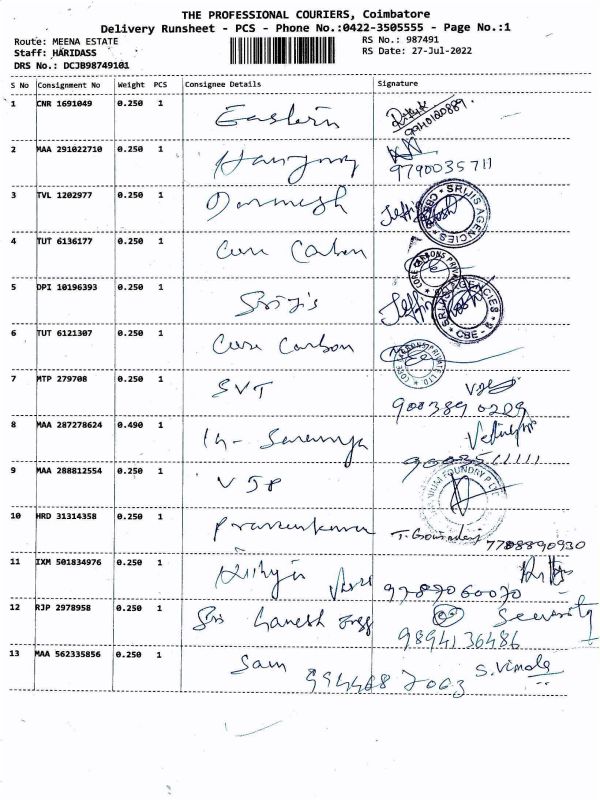 THE PROFESSIONAL COURIERS, Coimbatore
Delivery Runsheet - PCS - Phone No.:0422-3505555 - Page No.:1
Route: MEENA ESTATE
RS No.: 987491
Staff: HARIDASS
RS Date: 27-Jul-2022
DRS No.: DCJB98749101
S No Consignment No Weight PCS Consignee Details Signature
1 CNR 1691049 0.250 1 Eastern 9940180889
2 MAA 291022710 0.250 1 9790035711
3 TVL 1202977 0.250 1 SRIJIS AGENCIES CBE
4 TUT 6136177 0.250 1 Core Carbon
5 DPI 10196393 0.250 1 Srijis SRIJIS AGENCIES CBE
6 TUT 6121307 0.250 1 Core Carbon
7 MTP 279708 0.250 1 SVT 9003890209
8 MAA 287278624 0.490 1 9003511111
9 MAA 288812554 0.250 1 FOUNDRY P LTD
10 HRD 31314358 0.250 1 7708890930
11 IXM 501834976 0.250 1 9789060070
12 RJP 2978958 0.250 1 Sri Ganesh Engg Security
9894136486
13 MAA 562335856 0.250 1 Sam S. Vimala